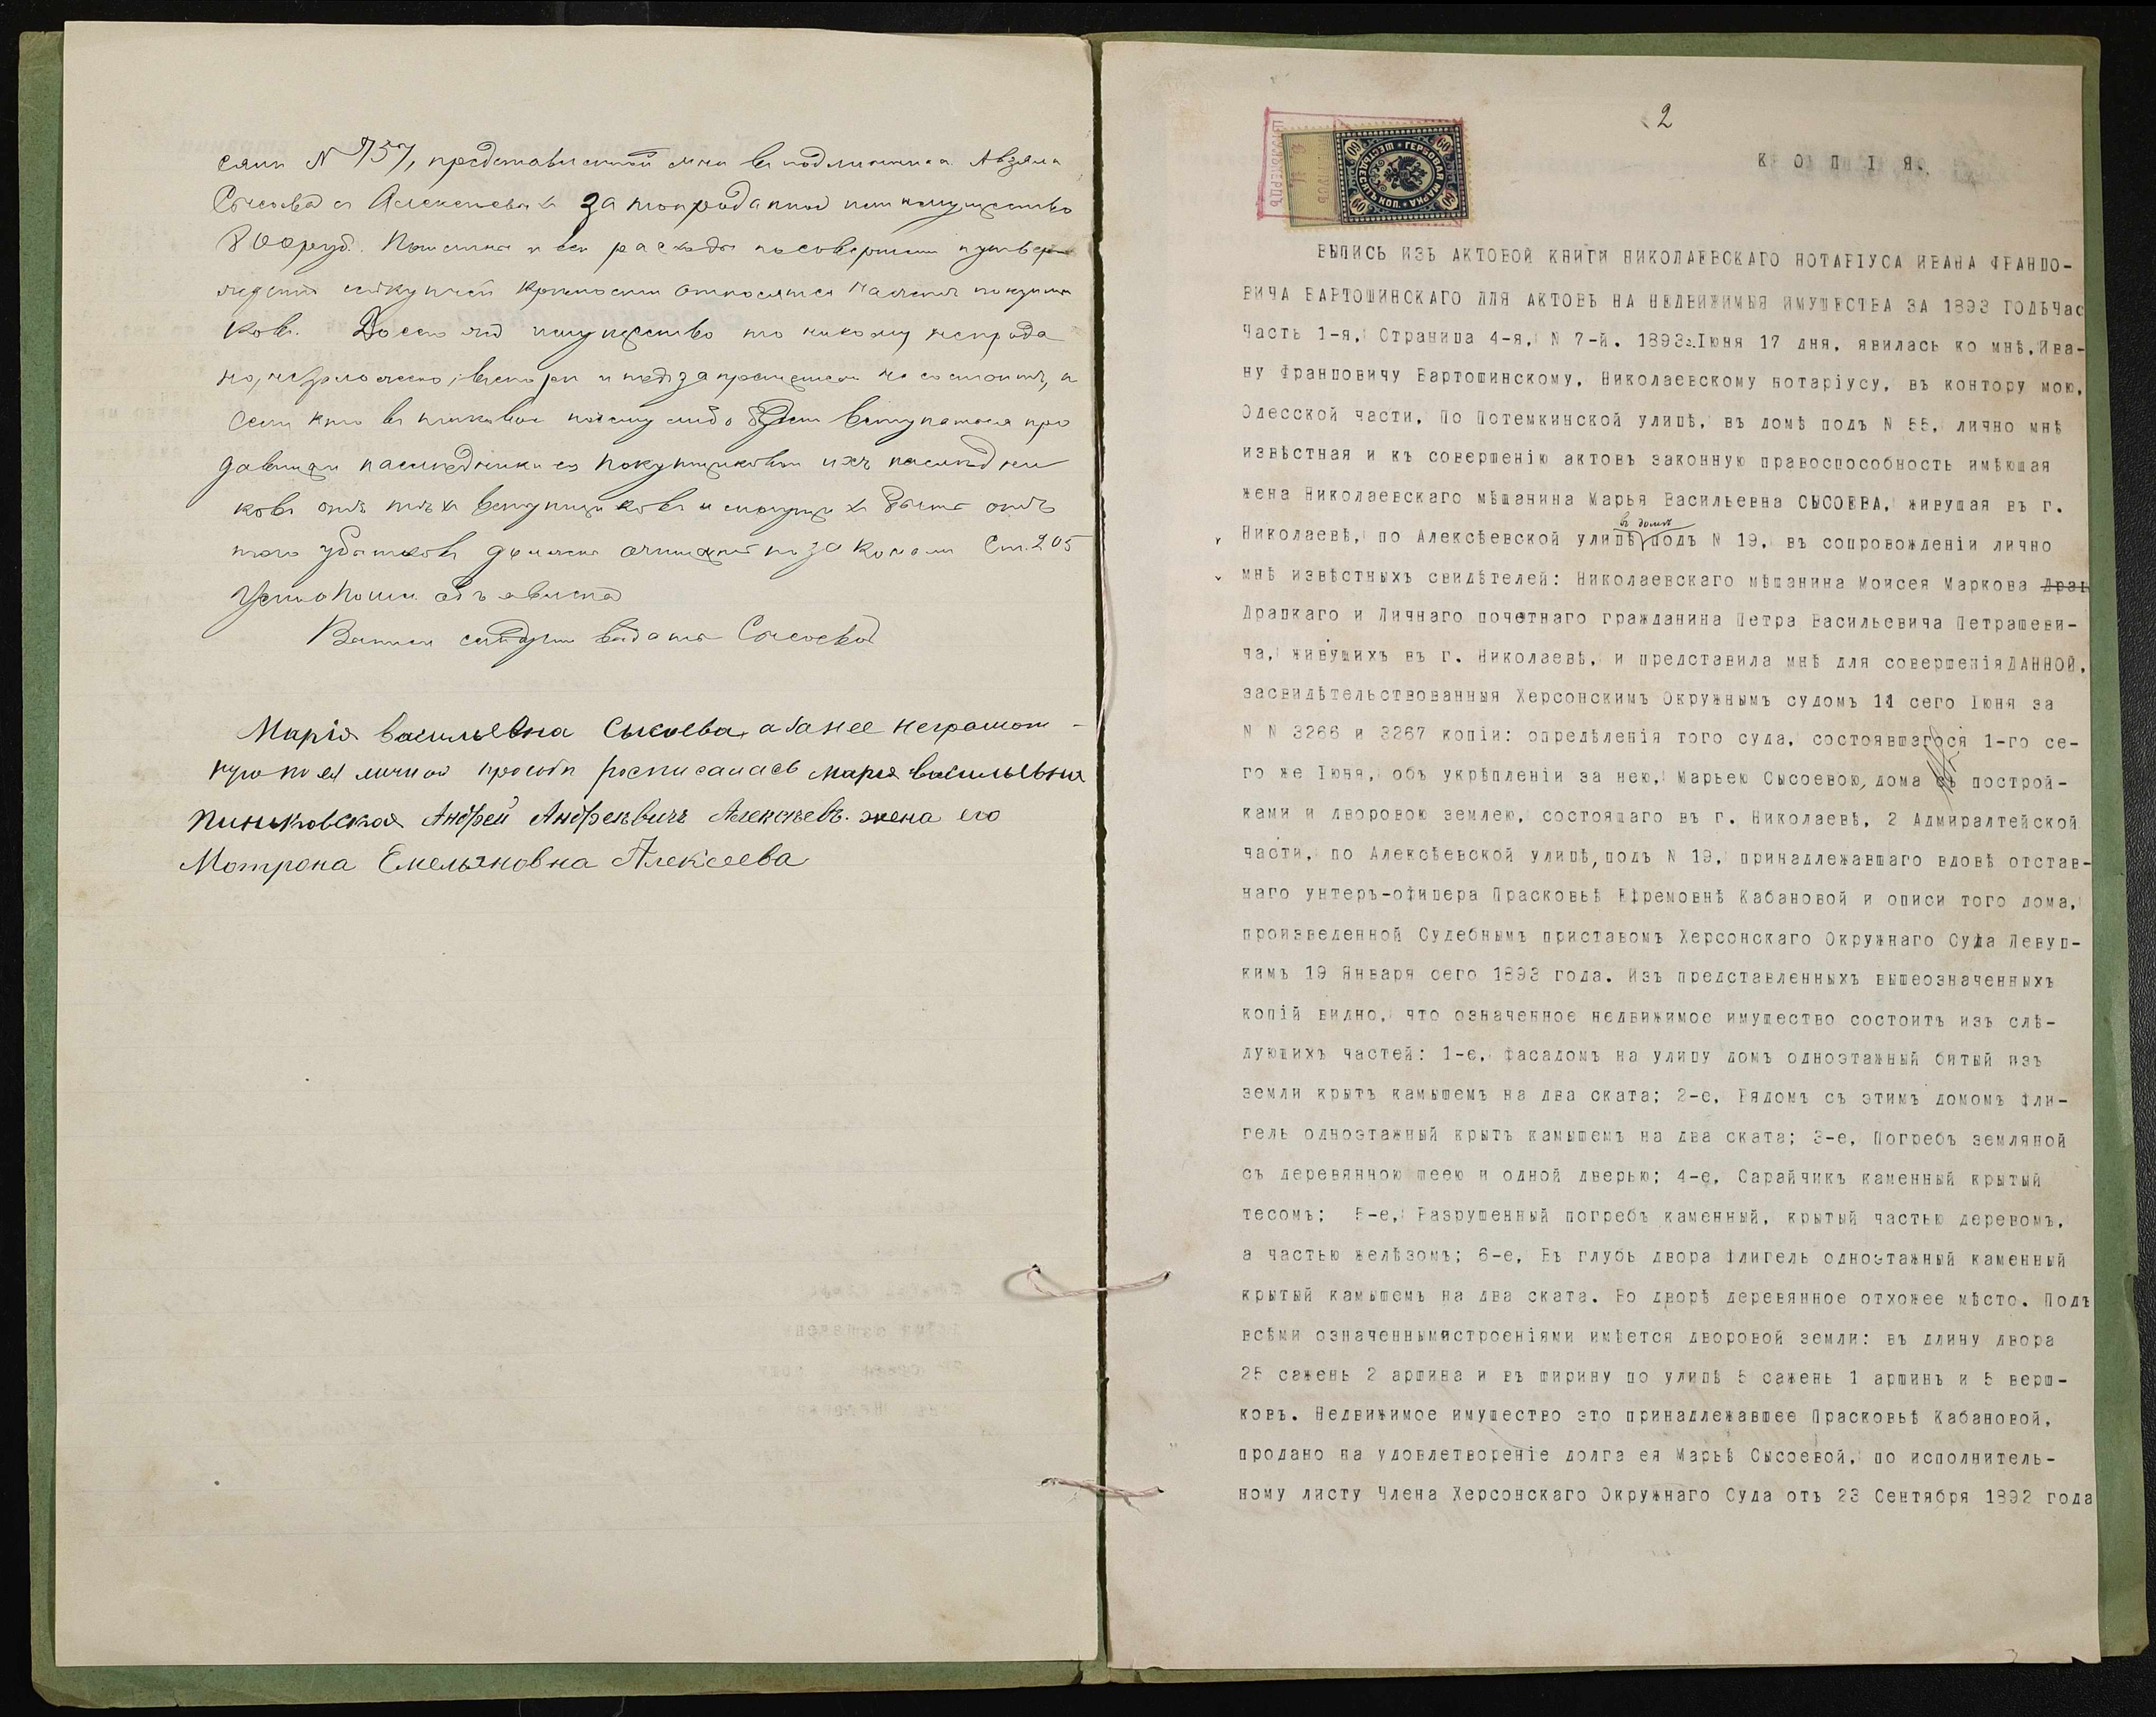 сяти N 757, представленной мнѣ въ подлинникѣ. А взяла
Сысоева съ Алексѣевыхъ за то проданное имъ имущество
800 руб. Пошлины и всѣ расходы по совершенію и утверж
денію сей купчей крѣпости относятся на счетъ покупщи
ковъ. До сего же имущество то никому не прода
но, не заложено, въ споре и подъ запрещеніемъ не состоитъ, и
если кто въ таковое почему либо будетъ вступаться про
давщица и наслѣдники ея покупщиковъ и ихъ наслѣдни
ковъ отъ тѣхъ вступщиковъ и могущихъ быть отъ
того убытковъ должны очищать по законамъ Ст. 205
Уст. о Пошл. объявлена
Выпись слѣдуетъ выдать Сысоевой
Марія васильевна Сысоева, а за нее неграмот-
ную по ея личной просьбѣ росписалась марія васильевна
Пиньковская Андрей Андреевичъ Алексѣевъ. жена его
Мотрона Емельяновна Алексеева
2
КОПІЯ.
ГЕРБОВАЯ МАРКА ШЕСТЬДЕСЯТЪ КОП. 60
ВЫПИСЬ ИЗЪ АКТОВОЙ КНИГИ НИКОЛАЕВСКАГО НОТАРІУСА ИВАНА ФРАНЦО-
ВИЧА БАРТОШИНСКАГО ДЛЯ АКТОВЪ НА НЕДВИЖИМЫЯ ИМУЩЕСТВА ЗА 1893 ГОДЪЧас
Часть 1-я, Страница 4-я, N 7-й. 1893. Іюня 17 дня, явилась ко мнѣ, Ива-
ну Францовичу Бартошинскому, Николаевскому нотаріусу, въ контору мою,
Одесской части, По Потемкинской улицѣ, въ домѣ подъ N 55, лично мнѣ
извѣстная и къ совершенію актовъ законную правоспособность имѣющая
жена Николаевскаго мѣщанина Марья Васильевна СЫСОЕВА, живущая въ г.
Николаевѣ, по Алексѣевской улицѣ въ домѣ подъ N 19, въ сопровожденіи лично
мнѣ извѣстныхъ свидѣтелей: Николаевскаго мѣщанина Моисея Маркова Драп
Драпкаго и Личнаго почетнаго гражданина Петра Васильевича Петрашеви-
ча, живущихъ въ г. Николаевѣ, и представила мнѣ для совершеніяДАННОЙ,
засвидѣтельствованныя Херсонскимъ Окружнымъ судомъ 11 сего Іюня за
N N 3266 и 3267 копіи: опредѣленія того суда, состоявшагося 1-го се-
го же Іюня, объ укрѣпленіи за нею, Марьею Сысоевою, дома съ построй-
ками и дворовою землею, состоящаго въ г. Николаевѣ, 2 Адмиралтейской
части, по Алексѣевской улицѣ, подъ N 19, принадлежавшаго вдовѣ отстав-
наго унтеръ-офицера Прасковьѣ Ефремовнѣ Кабановой и описи того дома,
произведенной Судебнымъ приставомъ Херсонскаго Окружнаго Суда Левуц-
кимъ 19 Января сего 1893 года. Изъ представленныхъ вышеозначенныхъ
копій видно, что означенное недвижимое имущество состоитъ изъ слѣ-
дующихъ частей: 1-е, фасадомъ на улицу домъ одноэтажный битый изъ
земли крытъ камышемъ на два ската; 2-е, Рядомъ съ этимъ домомъ фли-
гель одноэтажный крытъ камышемъ на два ската; 3-е, Погребъ земляной
съ деревянною шеею и одной дверью; 4-е, Сарайчикъ каменный крытый
тесомъ; 5-е, Разрушенный погребъ каменный, крытый частью деревомъ,
а частью желѣзомъ; 6-е, Въ глубь двора флигель одноэтажный каменный
крытый камышемъ на два ската. Во дворѣ деревянное отхожее мѣсто. Подъ
всѣми означеннымистроеніями имѣется дворовой земли: въ длину двора
25 сажень 2 аршина и въ ширину по улицѣ 5 сажень 1 аршинъ и 5 верш-
ковъ. Недвижимое имущество это принадлежавшее Прасковьѣ Кабановой,
продано на удовлетвореніе долга ея Марьѣ Сысоевой, по исполнитель-
ному листу Члена Херсонскаго Окружнаго Суда отъ 23 Сентября 1892 года